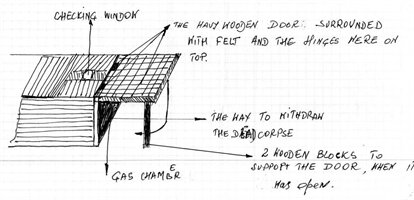 CHECKING WINDOW
THE HAVY WOODEN DOOR: SURROUNDED
WITH FELT AND THE HINGES WERE ON
TOP.
THE WAY TO WITHDRAW
THE DEAD CORPSE
2 WOODEN BLOCKS TO
SUPPORT THE DOOR, WHEN IT
Was open.
GAS CHAMBER